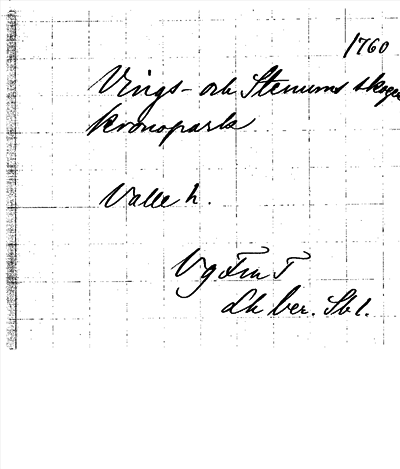 1760
Vings- och Stenums skogen
kronopark
Valle h.
VgFmT
Lk ber. Sbl.